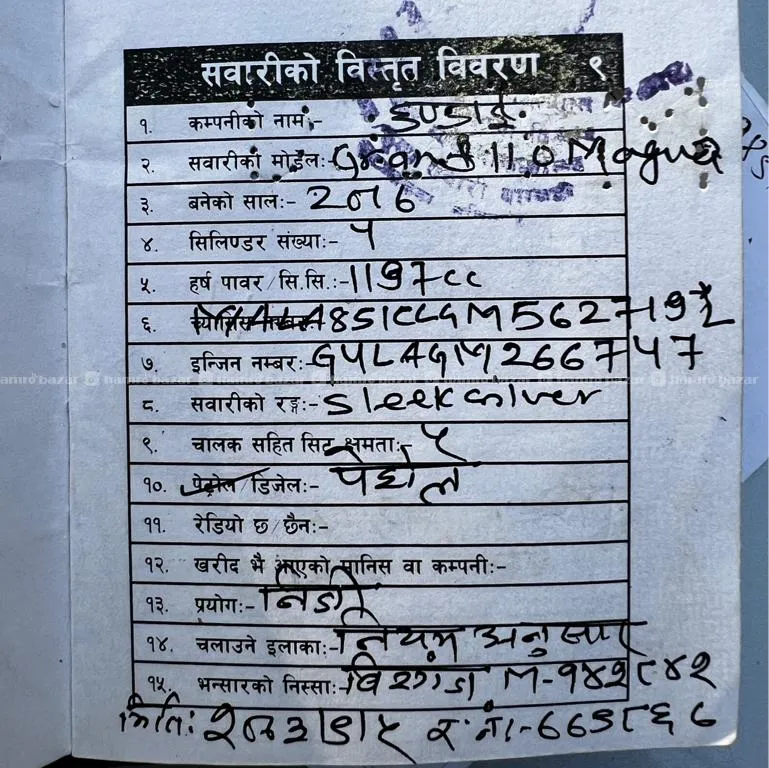 सवारीको विस्तृत विवरण ९
१. कम्पनीको नाम:- हुण्डाई
२. सवारीको मोडेल:- Grand i10 Magna
३. बनेको साल:- 2016
४. सिलिण्डर संख्या:- ४
५. हर्ष पावर/सि.सि.:- 1197cc
६. MALA851CLGM562719
७. इन्जिन नम्बर:- G4LAGM266747
८. सवारीको रङ्ग:- Sleek silver
९. चालक सहित सिट क्षमता:- ५
१०. पेट्रोल/डिजेल:- पेट्रोल
११. रेडियो छ/छैन:-
१२. खरीद भै आएको मानिस वा कम्पनी:-
१३. प्रयोग:- निजी
१४. चलाउने इलाका:- नियम अनुसार
१५. भन्सारको निस्सा:- M-१४२८४२
मिति: २०७३।
hamro bazar hamro bazar hamro bazar hamro bazar